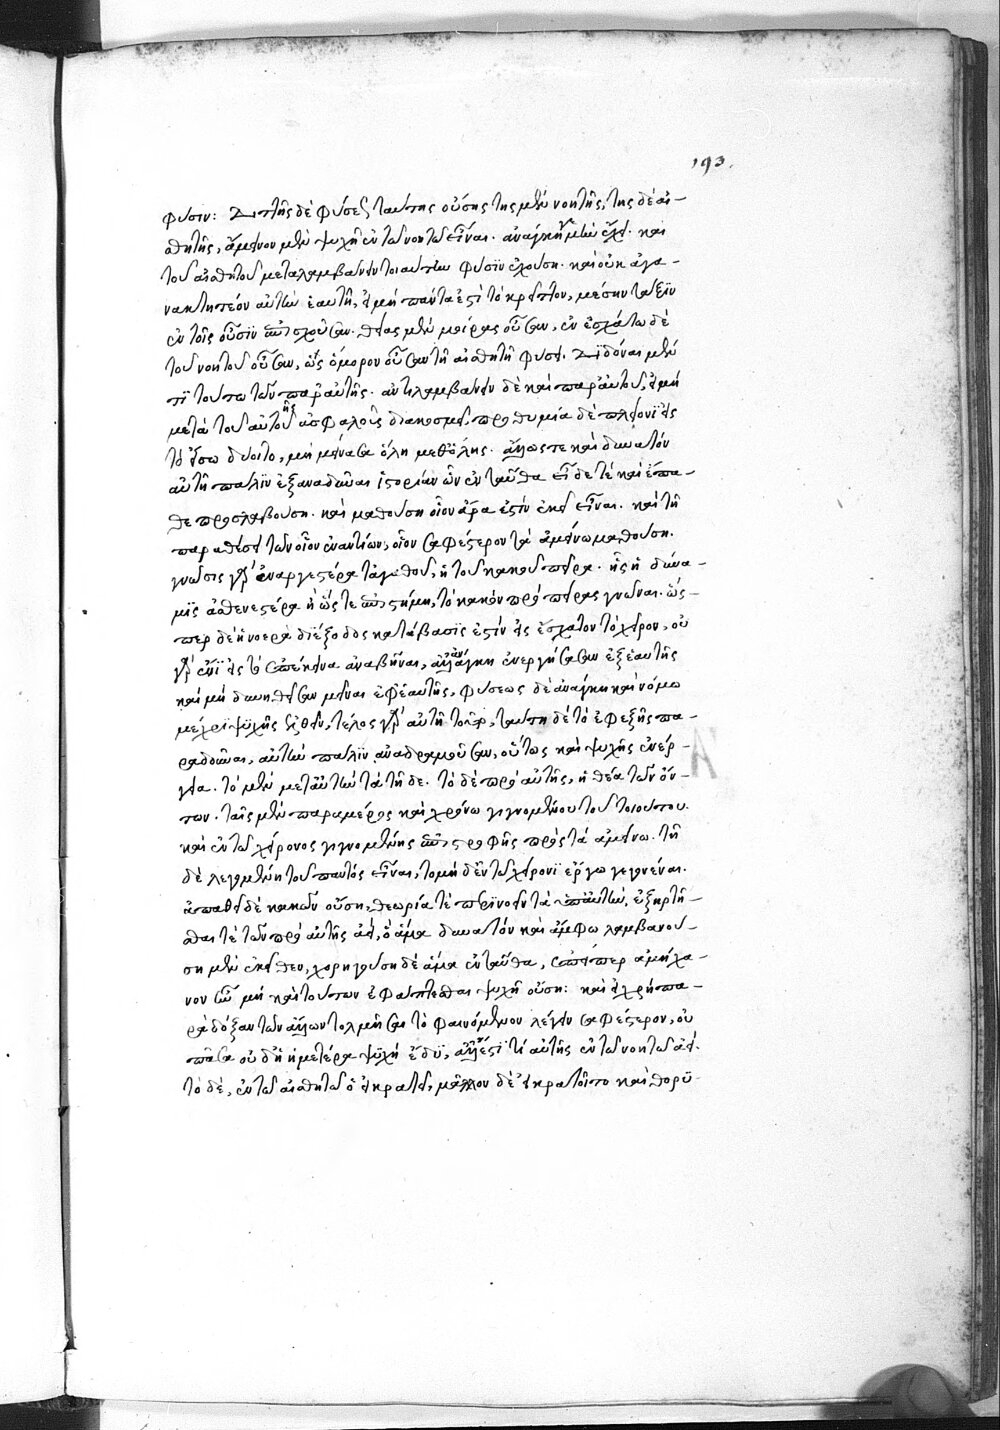 193.
φύσιν: Διττῆς δὲ φύσεως ταύτης οὔσης τῆς μὲν νοητῆς, τῆς δὲ αἰ-
σθητῆς, ἄμεινον μὲν ψυχῇ ἐν τῷ νοητῷ εἶναι. ἀνάγκη γε μὴν ἔχει. καὶ
τοῦ αἰσθητοῦ μεταλαμβάνειν τοιαύτην φύσιν ἐχούσῃ. καὶ οὐκ ἀγα-
νακτητέον αὐτὴν ἑαυτῇ, εἰ μὴ πάντα ἐστὶ τὸ κρεῖττον, μέσην τάξιν
ἐν τοῖς οὖσιν ἐπισχοῦσαν. θείας μὲν μοίρας οὖσαν, ἐν ἐσχάτῳ δὲ
τοῦ νοητοῦ οὖσαν, ὡς ὅμορον οὖσαν τῇ αἰσθητῇ φύσει. διδόναι μέν
τι τούτῳ τῶν παρ' αὐτῆς. ἀντιλαμβάνειν δὲ καὶ παρ' αὐτοῦ, εἰ μὴ
μετὰ τοῦ αὐτοῦ ἀσφαλοῦς διακοσμεῖ, προθυμίᾳ δὲ πλείονι εἰς
τὸ εἴσω δύοιτο, μὴ μείνασα ὅλη μεθ' ὅλης. ἄλλως τε καὶ δυνατὸν
αὐτῇ πάλιν ἐξαναδῦναι ἱστορίαν ὧν ἐνταῦθα εἶδέ τε καὶ ἔπα-
θε προσλαβούσῃ. καὶ μαθούσῃ οἷον ἄρα ἐστὶν ἐκεῖ εἶναι. καὶ τῇ
παραθέσει τῶν οἷον ἐναντίων, οἷον σαφέστερον τὰ ἀμείνω μαθούσῃ.
γνῶσις γὰρ ἐναργεστέρα τἀγαθοῦ, ἡ τοῦ κακοῦ πεῖρα. οἷς ἡ δύνα-
μις ἀσθενεστέρα ἢ ὥστε ἐπιστήμῃ, τὸ κακὸν πρὸ πείρας γνῶναι. ὥσ-
περ δὲ ἡ νοερὰ διέξοδος κατάβασίς ἐστιν εἰς ἔσχατον τὸ χεῖρον, οὐ
γὰρ ἔνι εἰς τὸ ἐπέκεινα ἀναβῆναι, ἀλλ' ἀνάγκη ἐνεργήσασαν ἐξ ἑαυτῆς
καὶ μὴ δυνηθεῖσαν μεῖναι ἐφ' ἑαυτῆς, φύσεως δὲ ἀνάγκῃ καὶ νόμῳ
μέχρι ψυχῆς ἐλθεῖν, τέλος γὰρ αὐτῇ τοῦτο, ταύτῃ δὲ τὸ ἐφεξῆς πα-
ραδοῦναι, αὐτὴν πάλιν ἀναδραμοῦσαν, οὕτως καὶ ψυχῆς ἐνέρ-
γεια. τὸ μὲν μετ' αὐτὴν τὰ τῇδε. τὸ δὲ πρὸ αὐτῆς, ἡ θέα τῶν ὄν-
των. ταῖς μὲν παρὰ μέρος καὶ χρόνῳ γιγνομένου τοῦ τοιούτου.
καὶ ἐν τῷ χείρονος γιγνομένης ἐπιστροφῆς πρὸς τὰ ἀμείνω. τῇ
δὲ λεγομένῃ τοῦ παντὸς εἶναι, τὸ μὴ δ' ἐν τῷ χείρονι ἔργῳ γεγονέναι.
ἀπαθεῖ δὲ κακῶν οὔσῃ, θεωρίᾳ τε περινοεῖν τὰ ὑπ' αὐτήν, ἐξηρτῆ-
σθαι τε τῶν πρὸ αὐτῆς ἀεί, ὃ ἅμα δυνατὸν καὶ ἄμφω λαμβανού-
σῃ μὲν ἐκεῖθεν, χορηγούσῃ δὲ ἅμα ἐνταῦθα, ἐπείπερ ἀμήχα-
νον ἦν μὴ καὶ τούτων ἐφάπτεσθαι ψυχῇ οὔσῃ: καὶ εἰ χρὴ πα-
ρὰ δόξαν τῶν ἄλλων τολμῆσαι τὸ φαινόμενον λέγειν σαφέστερον, οὐ
πᾶσα οὐδ' ἡ ἡμετέρα ψυχὴ ἔδυ, ἀλλ' ἔστι τι αὐτῆς ἐν τῷ νοητῷ ἀεί.
τὸ δὲ, ἐν τῷ αἰσθητῷ ὃ εἰ κρατεῖ, μᾶλλον δὲ εἰ κρατοῖτο καὶ θορυ-